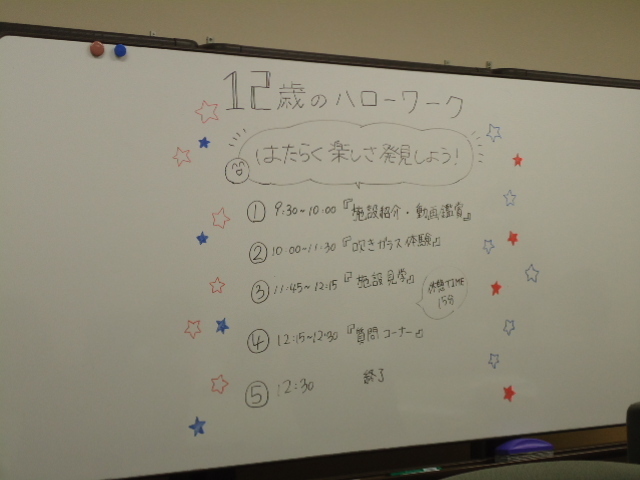 12歳のハローワーク
はたらく楽しさ発見しよう!
① 9:30~10:00『施設紹介・動画鑑賞』
② 10:00~11:30『吹きガラス体験』
③ 11:45~12:15『施設見学』
④ 12:15~12:30『質問コーナー』
⑤ 12:30 終了